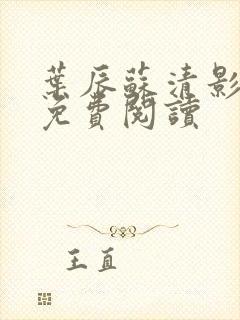 葉辰蘇清影
免費閱讀
王直